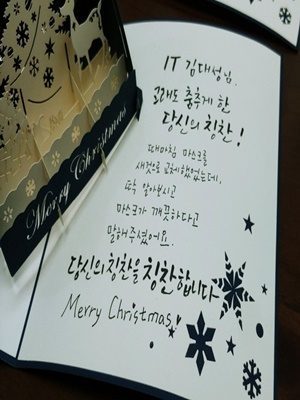 IT 김대성님.
고래도 춤추게 한
당신의 칭찬!
때마침 마스크를
새것으로 교체했었는데,
딱 알아보시고
마스크가 깨끗하다고
말해주셨어요.
당신의 칭찬을 칭찬합니다
Merry Christmas
Merry Christmas